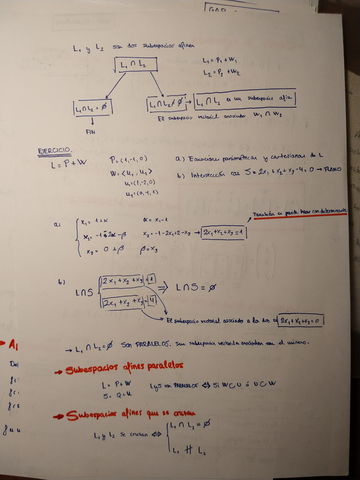 L₁ y L₂ son dos subespacios afines
L₁ ∩ L₂
L₁ = P₁ + W₁
L₂ = P₂ + W₂
L₁ ∩ L₂ = ∅
L₁ ∩ L₂ ≠ ∅ → L₁ ∩ L₂ es un subespacio afín
FIN
El subespacio vectorial asociado W₁ ∩ W₂
EJERCICIO.
L = P + W
P = (1,-1,0)
W = <u₁, u₂>
u₁ = (1,-2,0)
u₂ = (0,-1,1)
a) Ecuaciones paramétricas y cartesianas de L
b) Intersección con S ≡ 2x₁ + x₂ + x₃ - 4 = 0 → PLANO
También se puede hacer con determinante
a)
x₁ = 1 + α
α = x₁ - 1
x₂ = -1 - 2α - β
x₂ = -1 - 2x₁ + 2 - x₃ → 2x₁ + x₂ + x₃ = 1
x₃ = 0 + β
β = x₃
b)
L ∩ S
2x₁ + x₂ + x₃ = 1
⇒ L ∩ S = ∅
2x₁ + x₂ + x₃ = 4
El subespacio vectorial asociado a los dos es 2x₁ + x₂ + x₃ = 0
→ L₁ ∩ L₂ = ∅ SON PARALELOS. Sus subespacios vectoriales asociados son el mismo.
→ Subespacios afines paralelos
L = P + W
S = Q + U
L y S son PARALELOS ⇔ Si W ⊂ U ó U ⊂ W
→ Subespacios afines que se cruzan
L₁ y L₂ se cruzan ⇔
L₁ ∩ L₂ = ∅
L₁ ∦ L₂